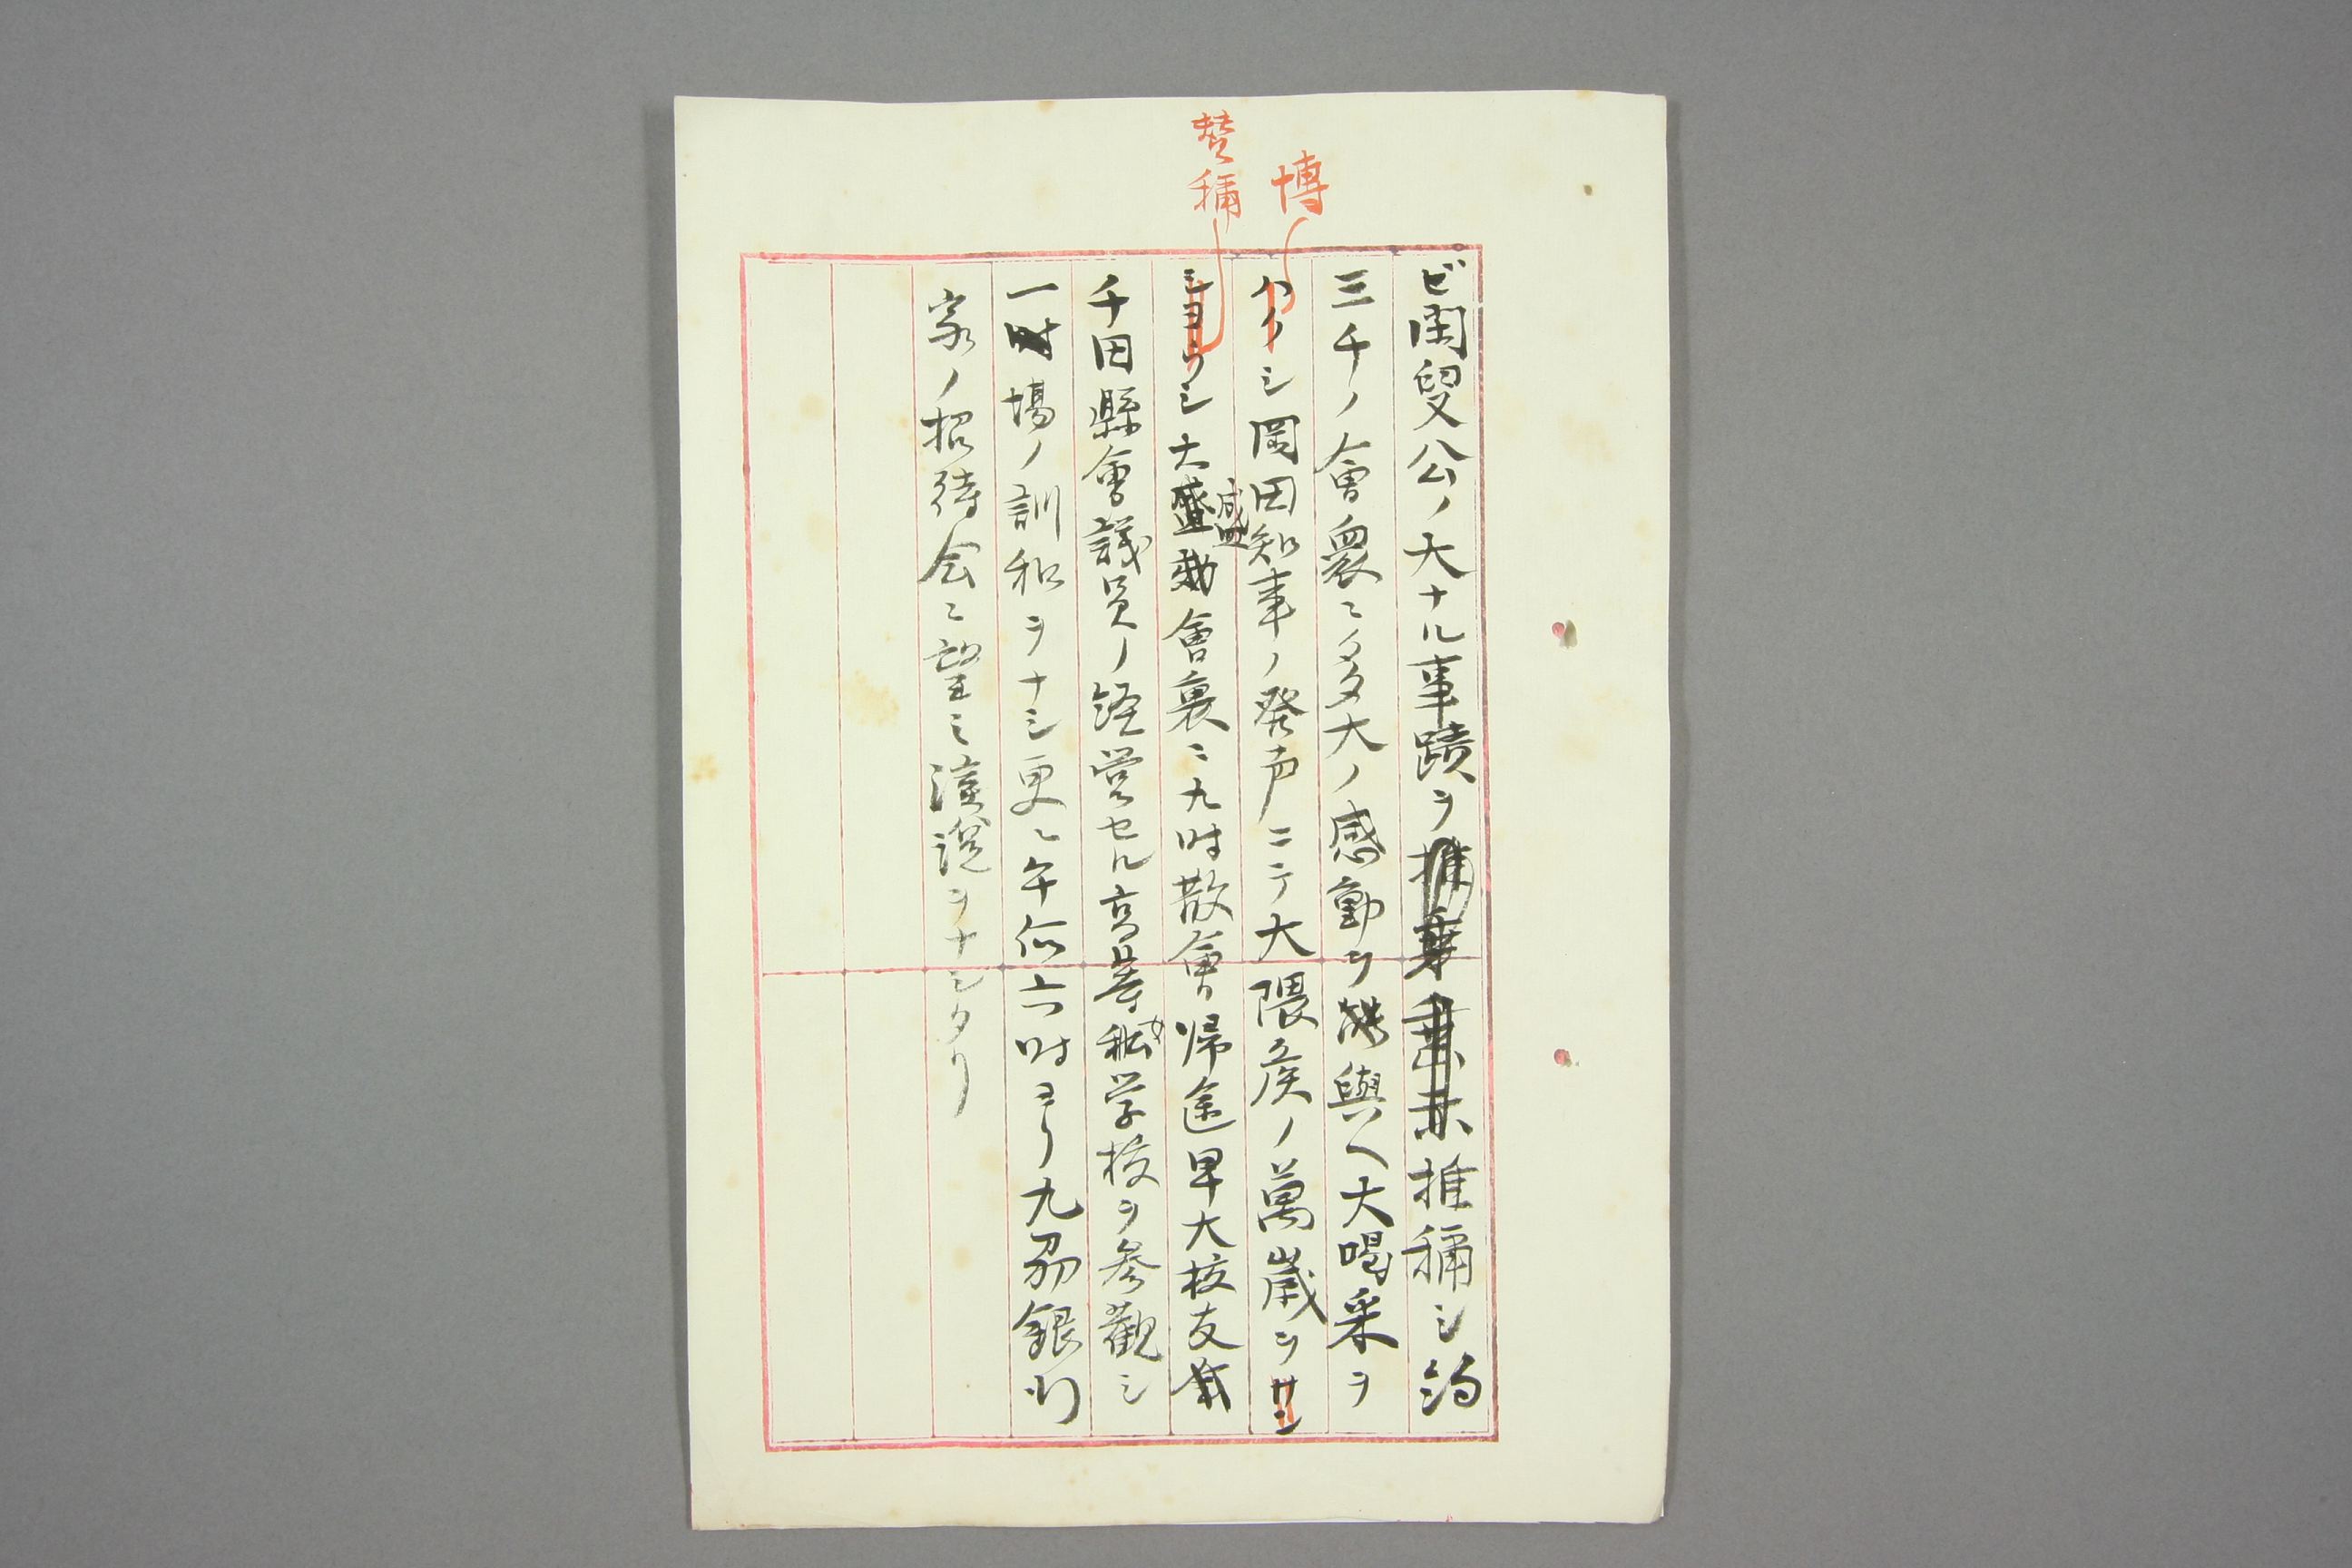 博
賛稱
ビ閑叟公ノ大ナル事蹟ヲ推稱シ約
三千ノ會衆ニ多大ノ感動ヲ與ヘ大喝采ヲ
ハクシ岡田知事ノ発声ニテ大隈侯ノ萬歳ヲサン
シヨウシ大盛會裏ニ九時散會帰途早大校友
千田縣會議員ノ経営セル高等女学校ヲ参観シ
一場ノ訓和ヲナシ更ニ午后六時ヨリ九州銀行
家ノ招待会ニ望ミ演説ヲナシタリ